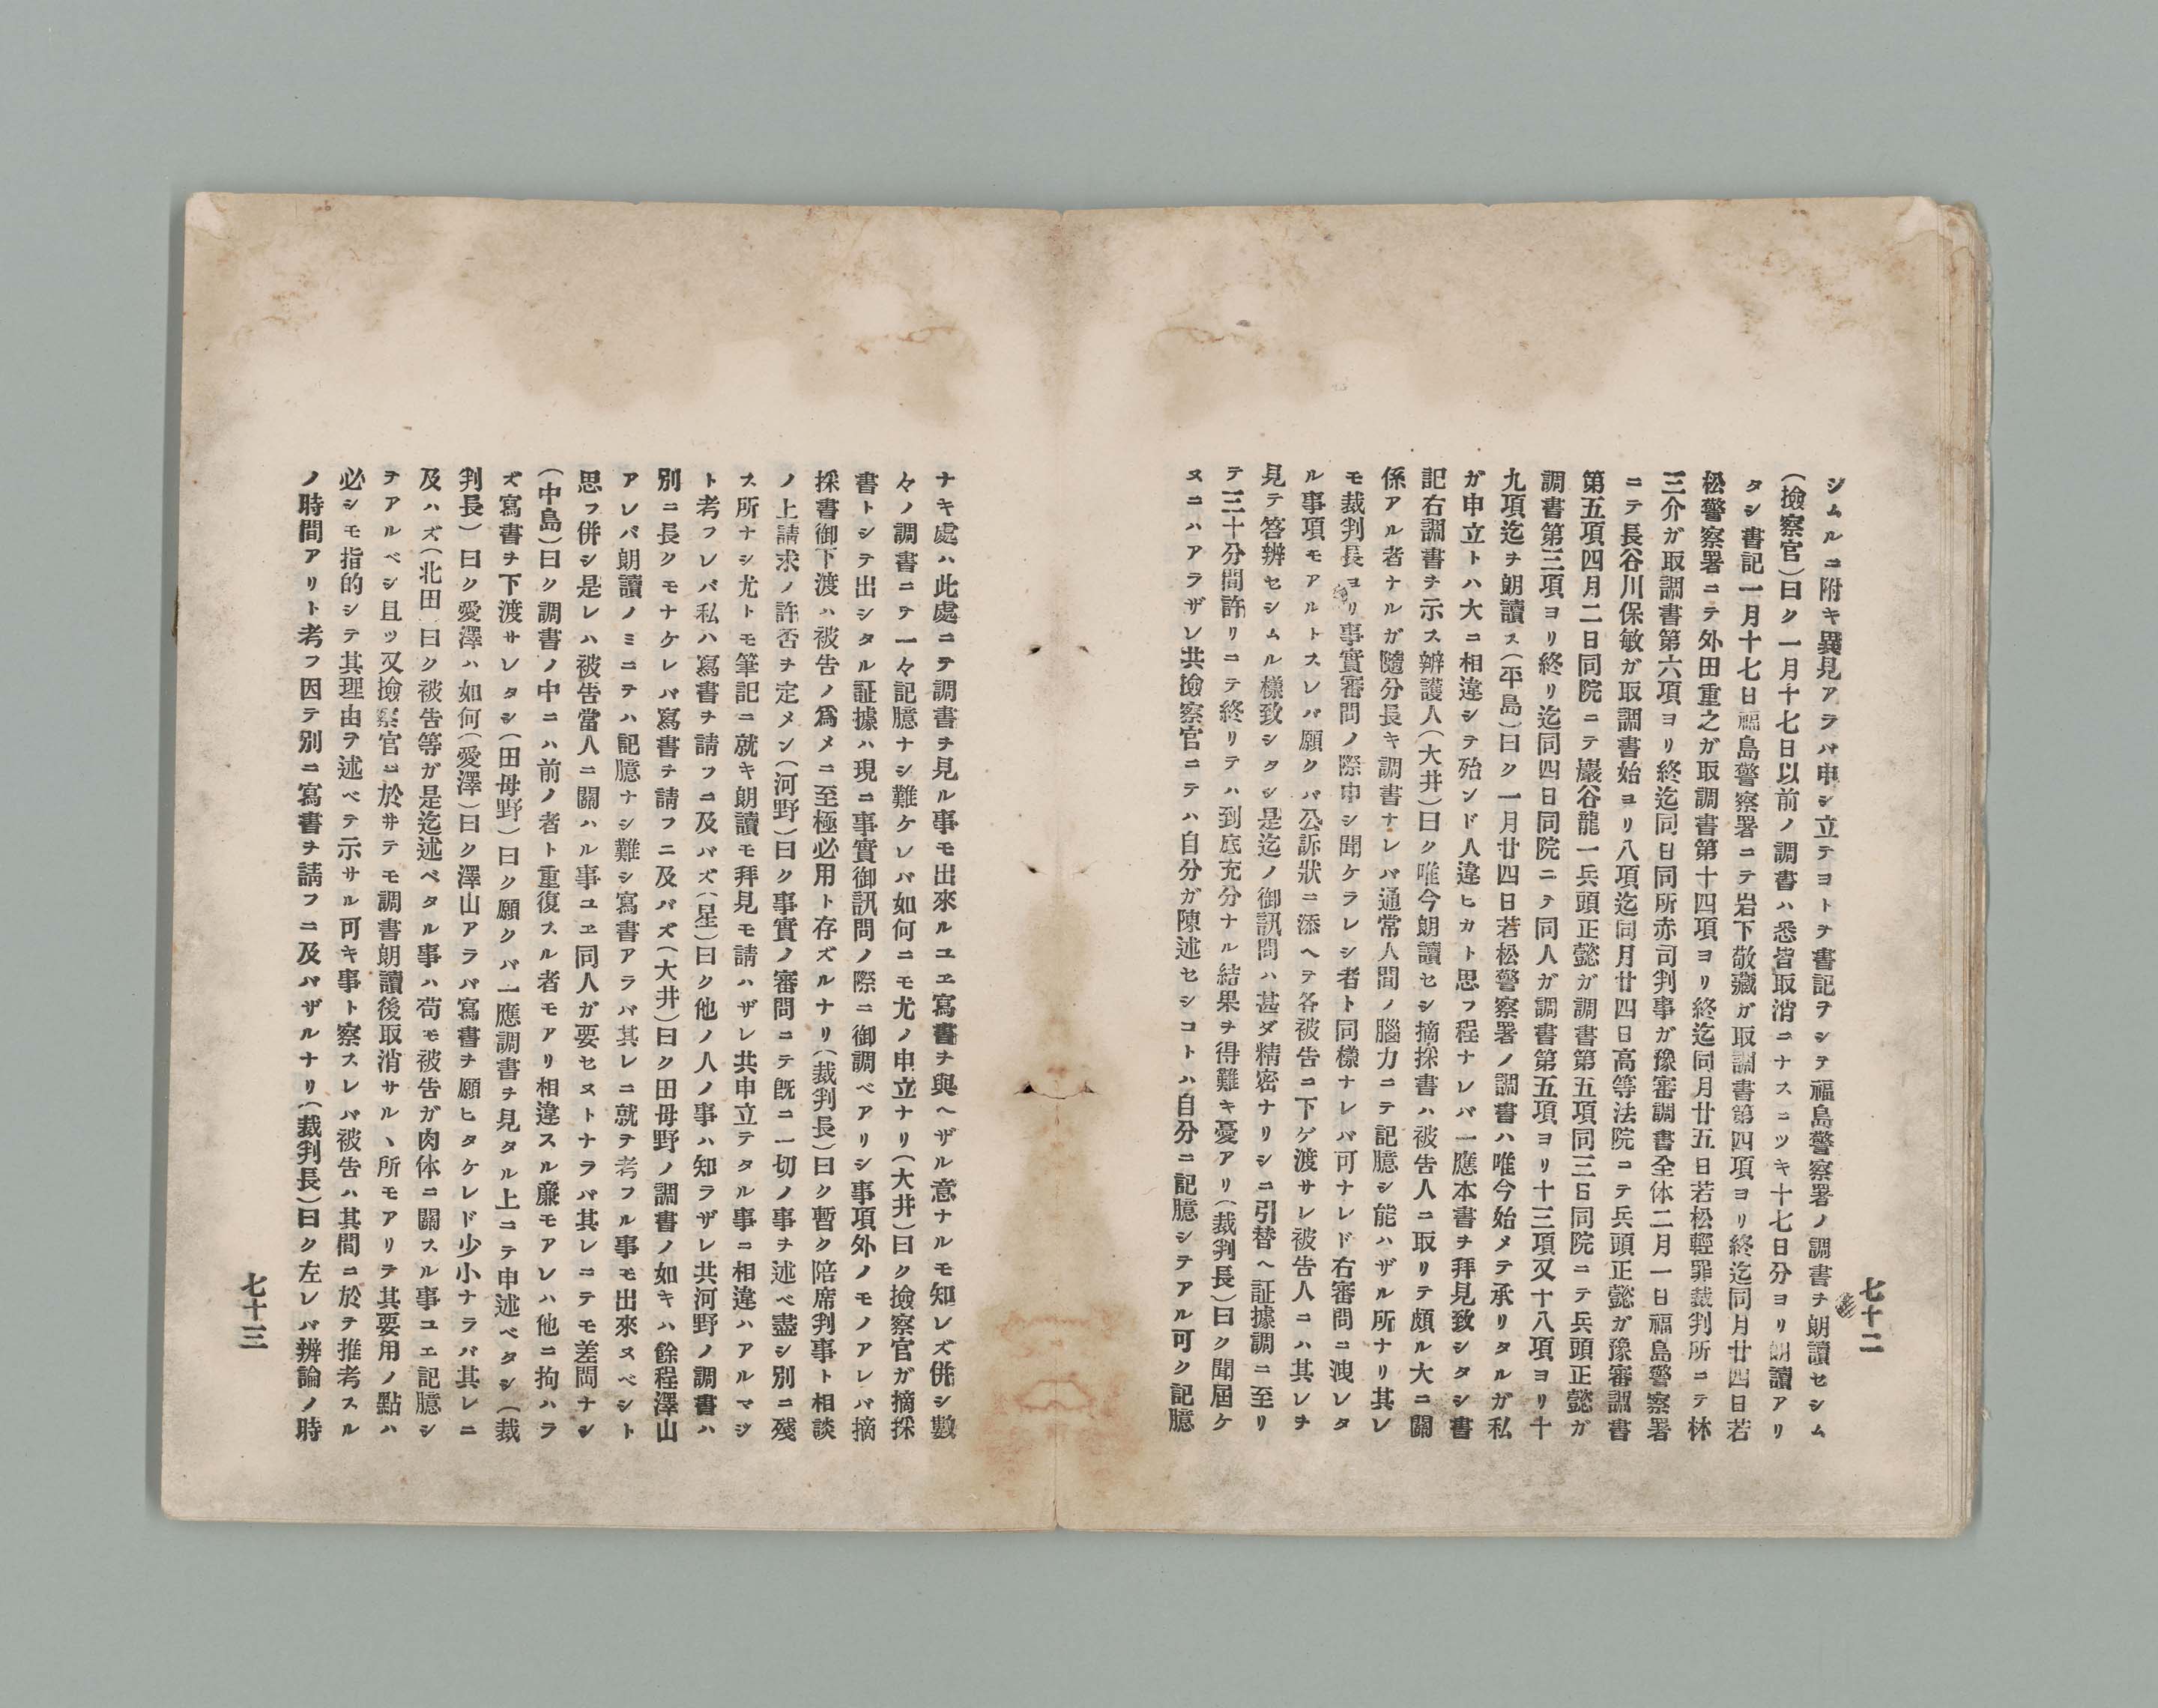 七十二
シムルニ附キ異見アラバ申シ立テヨトテ書記ヲシテ福島警察署ノ調書ヲ朗讀セシム
(撿察官)曰ク一月十七日以前ノ調書ハ悉皆取消ニナスニツキ十七日分ヨリ朗讀アリ
タシ書記一月十七日福島警察署ニテ岩下敬藏ガ取調書第四項ヨリ終迄同月廿四日若
松警察署ニテ外田重之ガ取調書第十四項ヨリ終迄同月廿五日若松輕罪裁判所ニテ林
三介ガ取調書第六項ヨリ終迄同日同所赤司判事ガ豫審調書全体二月一日福島警察署
ニテ長谷川保敏ガ取調書始ヨリ八項迄同月廿四日高等法院ニテ兵頭正懿ガ豫審調書
第五項四月二日同院ニテ巖谷龍一兵頭正懿ガ調書第五項同三日同院ニテ兵頭正懿ガ
調書第三項ヨリ終リ迄同四日同院ニテ同人ガ調書第五項ヨリ十三項又十八項ヨリ十
九項迄ヲ朗讀ス(平島)曰ク一月廿四日若松警察署ノ調書ハ唯今始メテ承リタルガ私
ガ申立トハ大ニ相違シテ殆ンド人違ヒカト思フ程ナレバ一應本書ヲ拜見致シタシ書
記右調書ヲ示ス辨護人(大井)曰ク唯今朗讀セシ摘採書ハ被告人ニ取リテ頗ル大ニ關
係アル者ナルガ隨分長キ調書ナレバ通常人間ノ腦力ニテ記臆シ能ハザル所ナリ其レ
モ裁判長ヨリ事實審問ノ際申シ聞ケラレシ者ト同樣ナレバ可ナレド右審問ニ洩レタ
ル事項モアルトスレバ願クバ公訴狀ニ添ヘテ各被告ニ下ゲ渡サレ被告人ニハ其レヲ
見テ答辨セシムル樣致シタシ是迄ノ御訊問ハ甚ダ精密ナリシニ引替ヘ証據調ニ至リ
テ三十分間許リニテ終リテハ到底充分ナル結果ヲ得難キ憂アリ(裁判長)曰ク聞屆ケ
ヌニハアラザレ共撿察官ニテハ自分ガ陳述セシコトハ自分ニ記臆シテアル可ク記臆
ナキ處ハ此處ニテ調書ヲ見ル事モ出來ルユヱ寫書ヲ與ヘザル意ナルモ知レズ併シ數
々ノ調書ニテ一々記臆ナシ難ケレバ如何ニモ尤ノ申立ナリ(大井)曰ク撿察官ガ摘採
書トシテ出シタル証據ハ現ニ事實御訊問ノ際ニ御調ベアリシ事項外ノモノアレバ摘
採書御下渡ハ被告ノ爲メニ至極必用ト存ズルナリ(裁判長)曰ク暫ク陪席判事ト相談
ノ上請求ノ許否ヲ定メン(河野)曰ク事實ノ審問ニテ旣ニ一切ノ事ヲ述ベ盡シ別ニ殘
ス所ナシ尤トモ筆記ニ就キ朗讀モ拜見モ請ハザレ共申立テタル事ニ相違ハアルマジ
ト考フレバ私ハ寫書ヲ請フニ及バズ(星)曰ク他ノ人ノ事ハ知ラザレ共河野ノ調書ハ
別ニ長クモナケレバ寫書ヲ請フニ及バズ(大井)曰ク田母野ノ調書ノ如キハ餘程澤山
アレバ朗讀ノミニテハ記臆ナシ難シ寫書アラバ其レニ就テ考フル事モ出來ヌベシト
思フ併シ是レハ被告當人ニ關ハル事ユヱ同人ガ要セヌトナラバ其レニテモ差閊ナシ
(中島)曰ク調書ノ中ニハ前ノ者ト重復スル者モアリ相違スル廉モアレハ他ニ拘ハラ
ズ寫書ヲ下渡サレタシ(田母野)曰ク願クバ一應調書ヲ見タル上ニテ申述ベタシ(裁
判長)曰ク愛澤ハ如何(愛澤)曰ク澤山アラバ寫書ヲ願ヒタケレド少小ナラバ其レニ
及ハズ(北田)曰ク被告等ガ是迄述ベタル事ハ苟モ被告ガ肉体ニ關スル事ユエ記臆シ
テアルベシ且ツ又撿察官ニ於井テモ調書朗讀後取消サル丶所モアリテ其要用ノ點ハ
必シモ指的シテ其理由ヲ述ベテ示サル可キ事ト察スレバ被告ハ其間ニ於テ推考スル
ノ時間アリト考フ因テ別ニ寫書ヲ請フニ及バザルナリ(裁判長)曰ク左レバ辨論ノ時
七十三